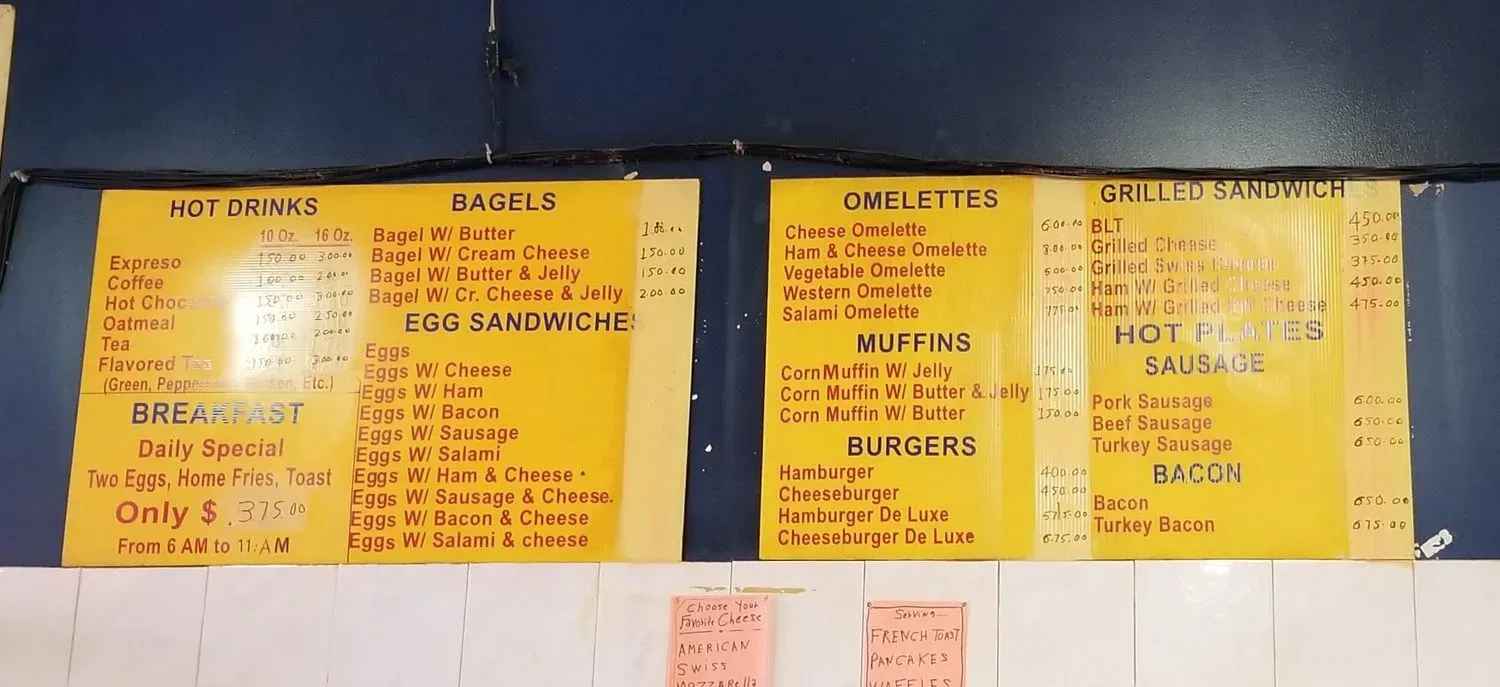 HOT DRINKS
10 Oz. 16 Oz.
Expreso 150.00 3.00.00
Coffee 1.00.00
Hot 150.00 3.00.00
Oatmeal 150.00 250.00
Tea 200.00
Flavored 150.00 300.00
(Green, Etc.)
BREAKFAST
Daily Special
Two Eggs, Home Fries, Toast
Only $ .375.00
From 6 AM to 11:AM
BAGELS
Bagel W/ Butter
Bagel W/ Cream Cheese 150.00
Bagel W/ Butter & Jelly 150.00
Bagel W/ Cr. Cheese & Jelly 200.00
EGG SANDWICHES
Eggs
Eggs W/ Cheese
Eggs W/ Ham
Eggs W/ Bacon
Eggs W/ Sausage
Eggs W/ Salami
Eggs W/ Ham & Cheese
Eggs W/ Sausage & Cheese.
Eggs W/ Bacon & Cheese
Eggs W/ Salami & cheese
OMELETTES
Cheese Omelette 600.00
Ham & Cheese Omelette 800.00
Vegetable Omelette 600.00
Western Omelette 750.00
Salami Omelette 775.00
MUFFINS
Corn Muffin W/ Jelly 175.00
Corn Muffin W/ Butter & Jelly 175.00
Corn Muffin W/ Butter 150.00
BURGERS
Hamburger 400.00
Cheeseburger 450.00
Hamburger De Luxe
Cheeseburger De Luxe 675.00
GRILLED SANDWICHES
BLT 450.00
Grilled Cheese 350.00
Grilled Swiss Cheese 375.00
Ham W/ Grilled Cheese 450.00
Ham W/ Grilled Cheese 475.00
HOT PLATES
SAUSAGE
Pork Sausage 600.00
Beef Sausage 650.00
Turkey Sausage 650.00
BACON
Bacon 650.00
Turkey Bacon 675.00
Choose Your
Favorite Cheese
AMERICAN
SWISS
MOZZARElla
Serving...
FRENCH TOAST
PANCAKES
WAFFLES